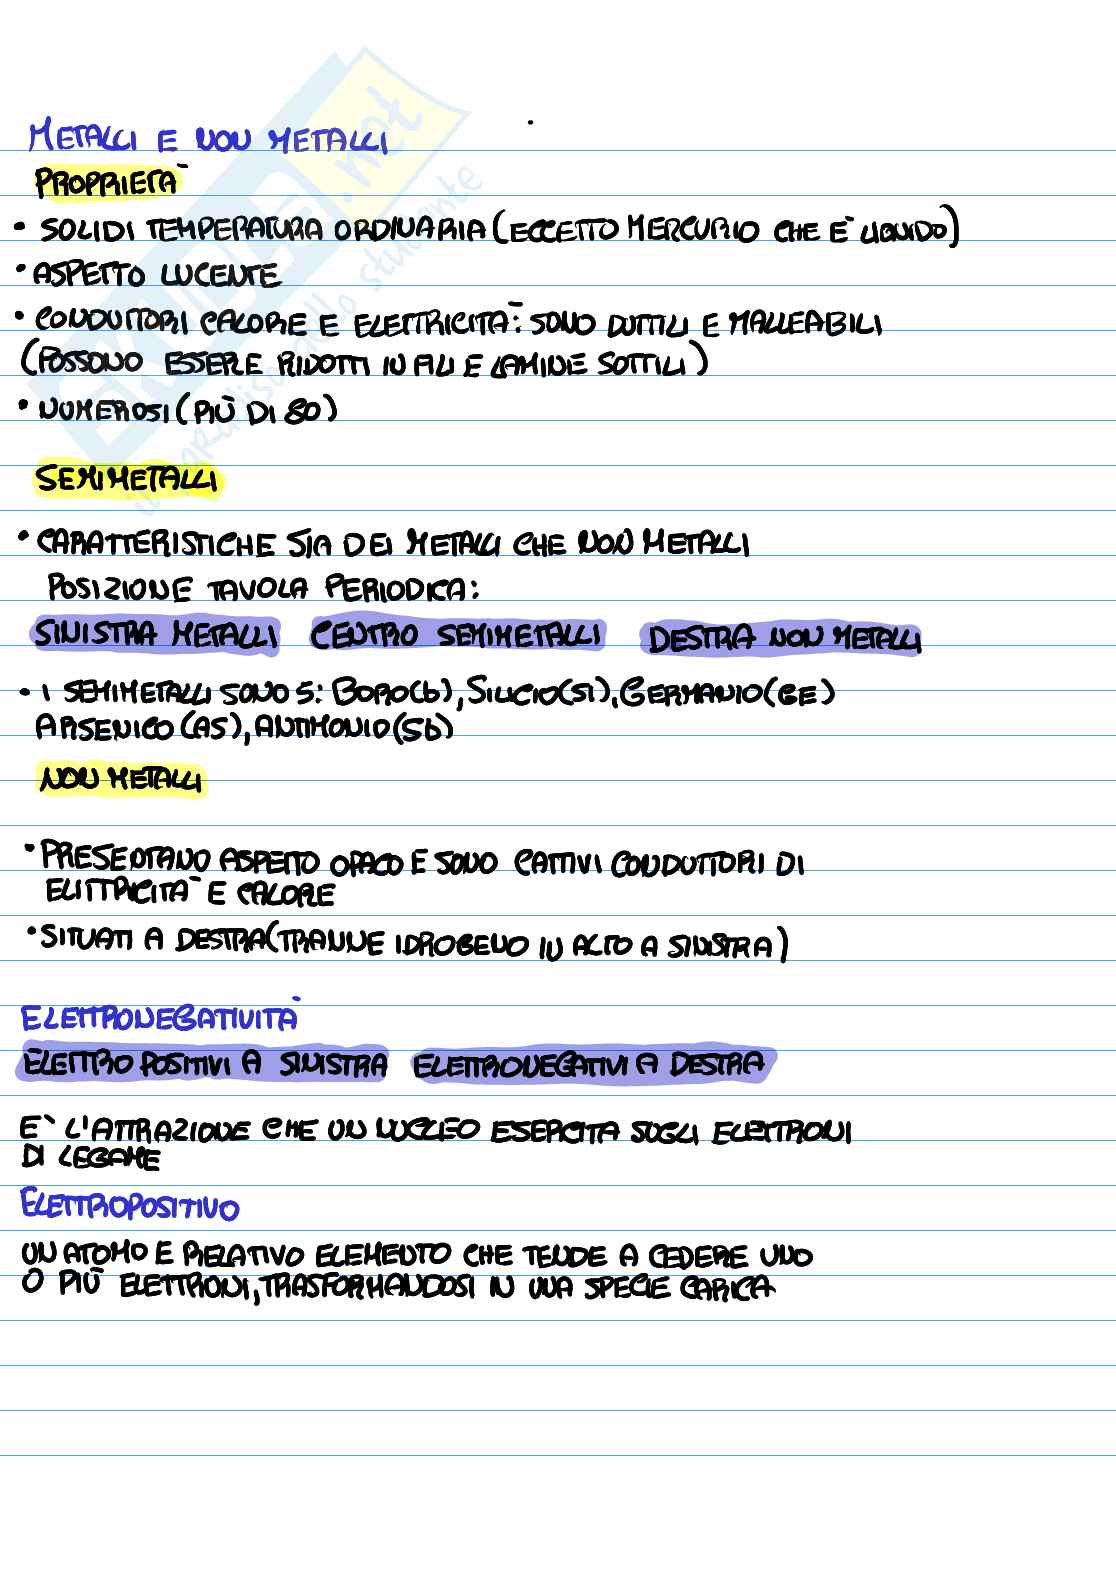 METALLI E NON METALLI
PROPRIETÀ
• SOLIDI TEMPERATURA ORDINARIA (ECCETTO MERCURIO CHE E' LIQUIDO)
• ASPETTO LUCENTE
• CONDUTTORI CALORE E ELETTRICITÀ: SONO DUTTILI E MALLEABILI
(POSSONO ESSERE RIDOTTI IN FILI E LAMINE SOTTILI)
• NUMEROSI (PIÙ DI 80)
SEMIMETALLI
• CARATTERISTICHE SIA DEI METALLI CHE NON METALLI
POSIZIONE TAVOLA PERIODICA:
SINISTRA METALLI CENTRO SEMIMETALLI DESTRA NON METALLI
• I SEMIMETALLI SONO 5: BORO(b), SILICIO(SI), GERMANIO(GE)
ARSENICO (AS), ANTIMONIO (Sb)
NON METALLI
• PRESENTANO ASPETTO OPACO E SONO CATTIVI CONDUTTORI DI
ELITTRICITÀ E CALORE
• SITUATI A DESTRA (TRANNE IDROGENO IN ALTO A SINISTRA)
ELETTRONEGATIVITÀ
ELETTRO POSITIVI A SINISTRA ELETTRONEGATIVI A DESTRA
E' L'ATTRAZIONE CHE UN NUCLEO ESERCITA SUGLI ELETTRONI
DI LEGAME
ELETTROPOSITIVO
UN ATOMO E RELATIVO ELEMENTO CHE TENDE A CEDERE UNO
O PIÙ ELETTRONI, TRASFORMANDOSI IN UNA SPECIE CARICA